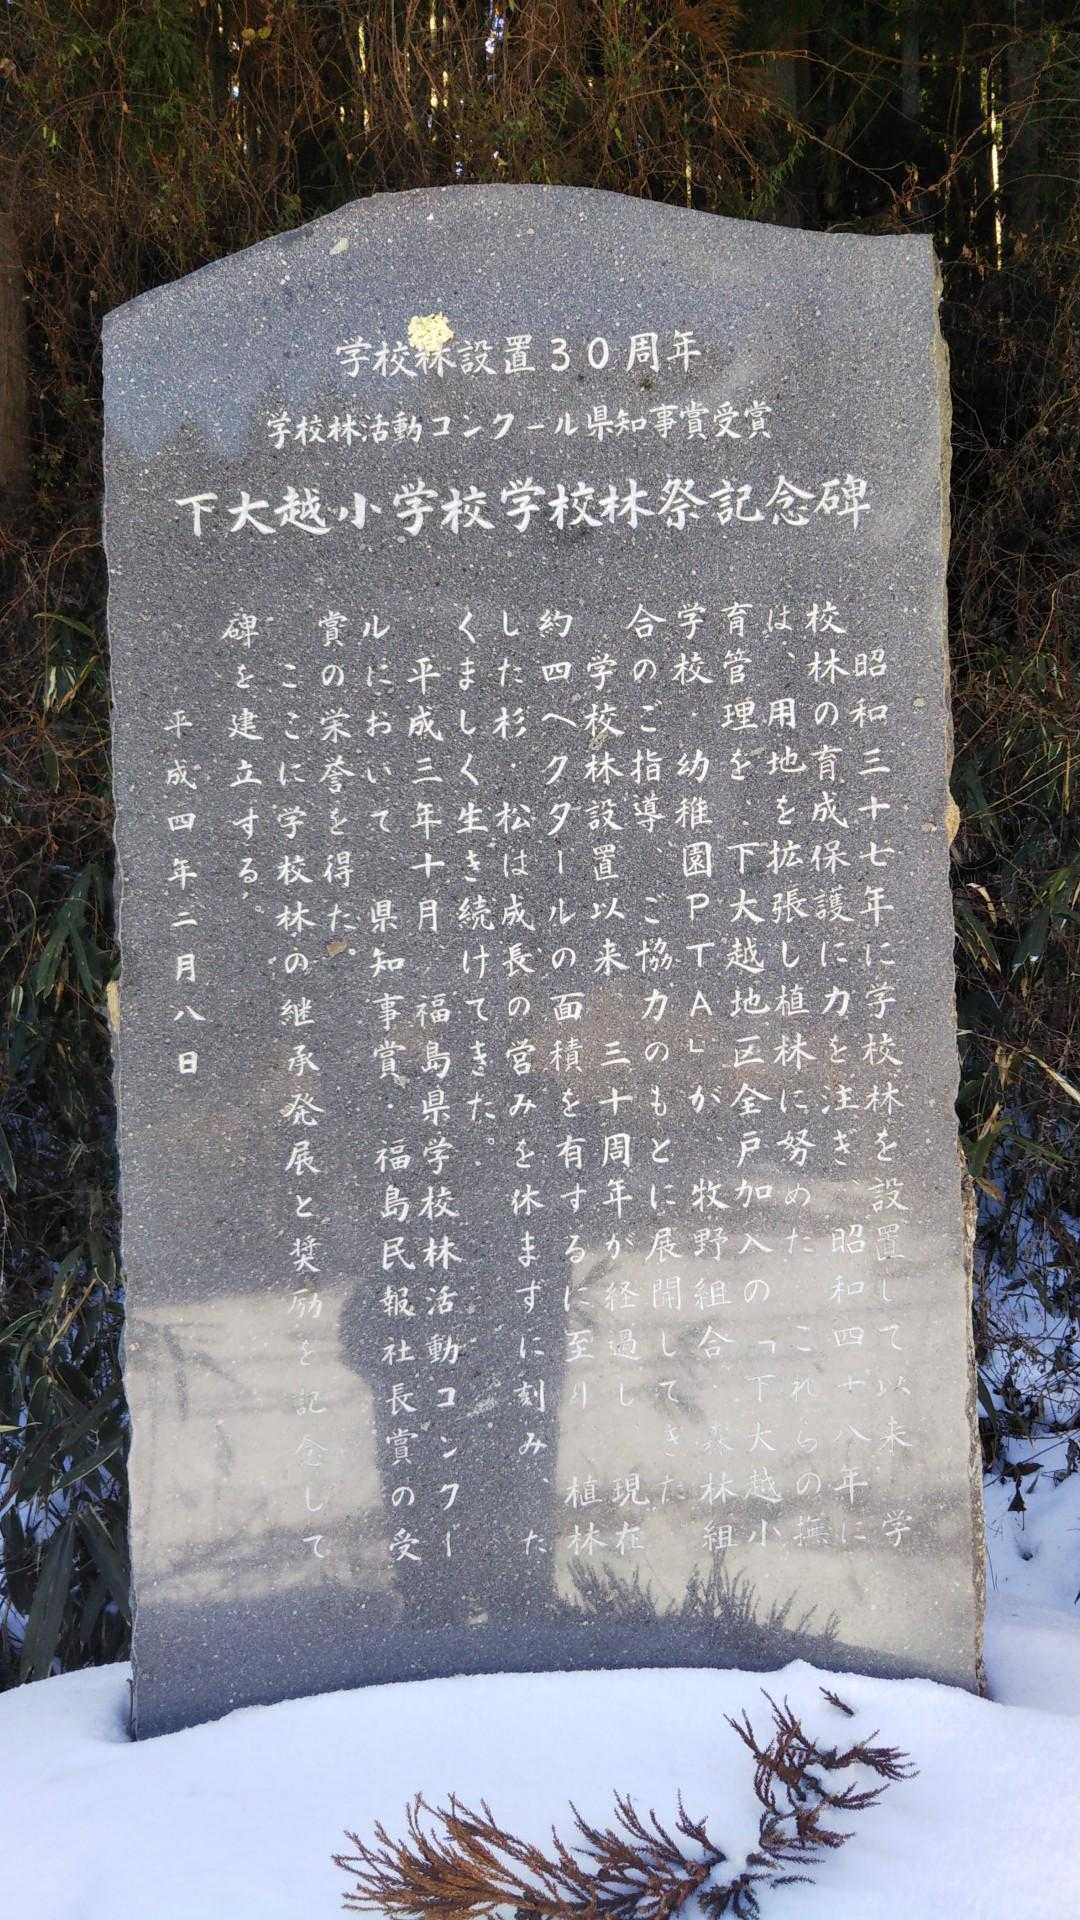 学校林設置30周年
学校林活動コンクール県知事賞受賞
下大越小学校学校林祭記念碑
昭和三十七年に学校林を設置して以来学
校林の育成保護に力を注ぎ、昭和四十八年に
は、用地を拡張し植林に努めた、これらの撫
育管理を、下大越地区全戸加入の「下大越小
学校・幼稚園PTA」が、牧野組合・森林組
合のご指導、ご協力のもとに展開してきた
学校林設置以来、三十周年が経過し、現在
約四ヘクタールの面積を有するに至り、植林
した杉・松は成長の営みを休まずに刻み、た
くましく生き続けてきた。
平成三年十月、福島県学校林活動コンクー
ルにおいて、県知事賞・福島民報社長賞の受
賞の栄誉を得た。
ここに学校林の継承発展と奨励を記念して
碑を建立する。
平成四年二月八日